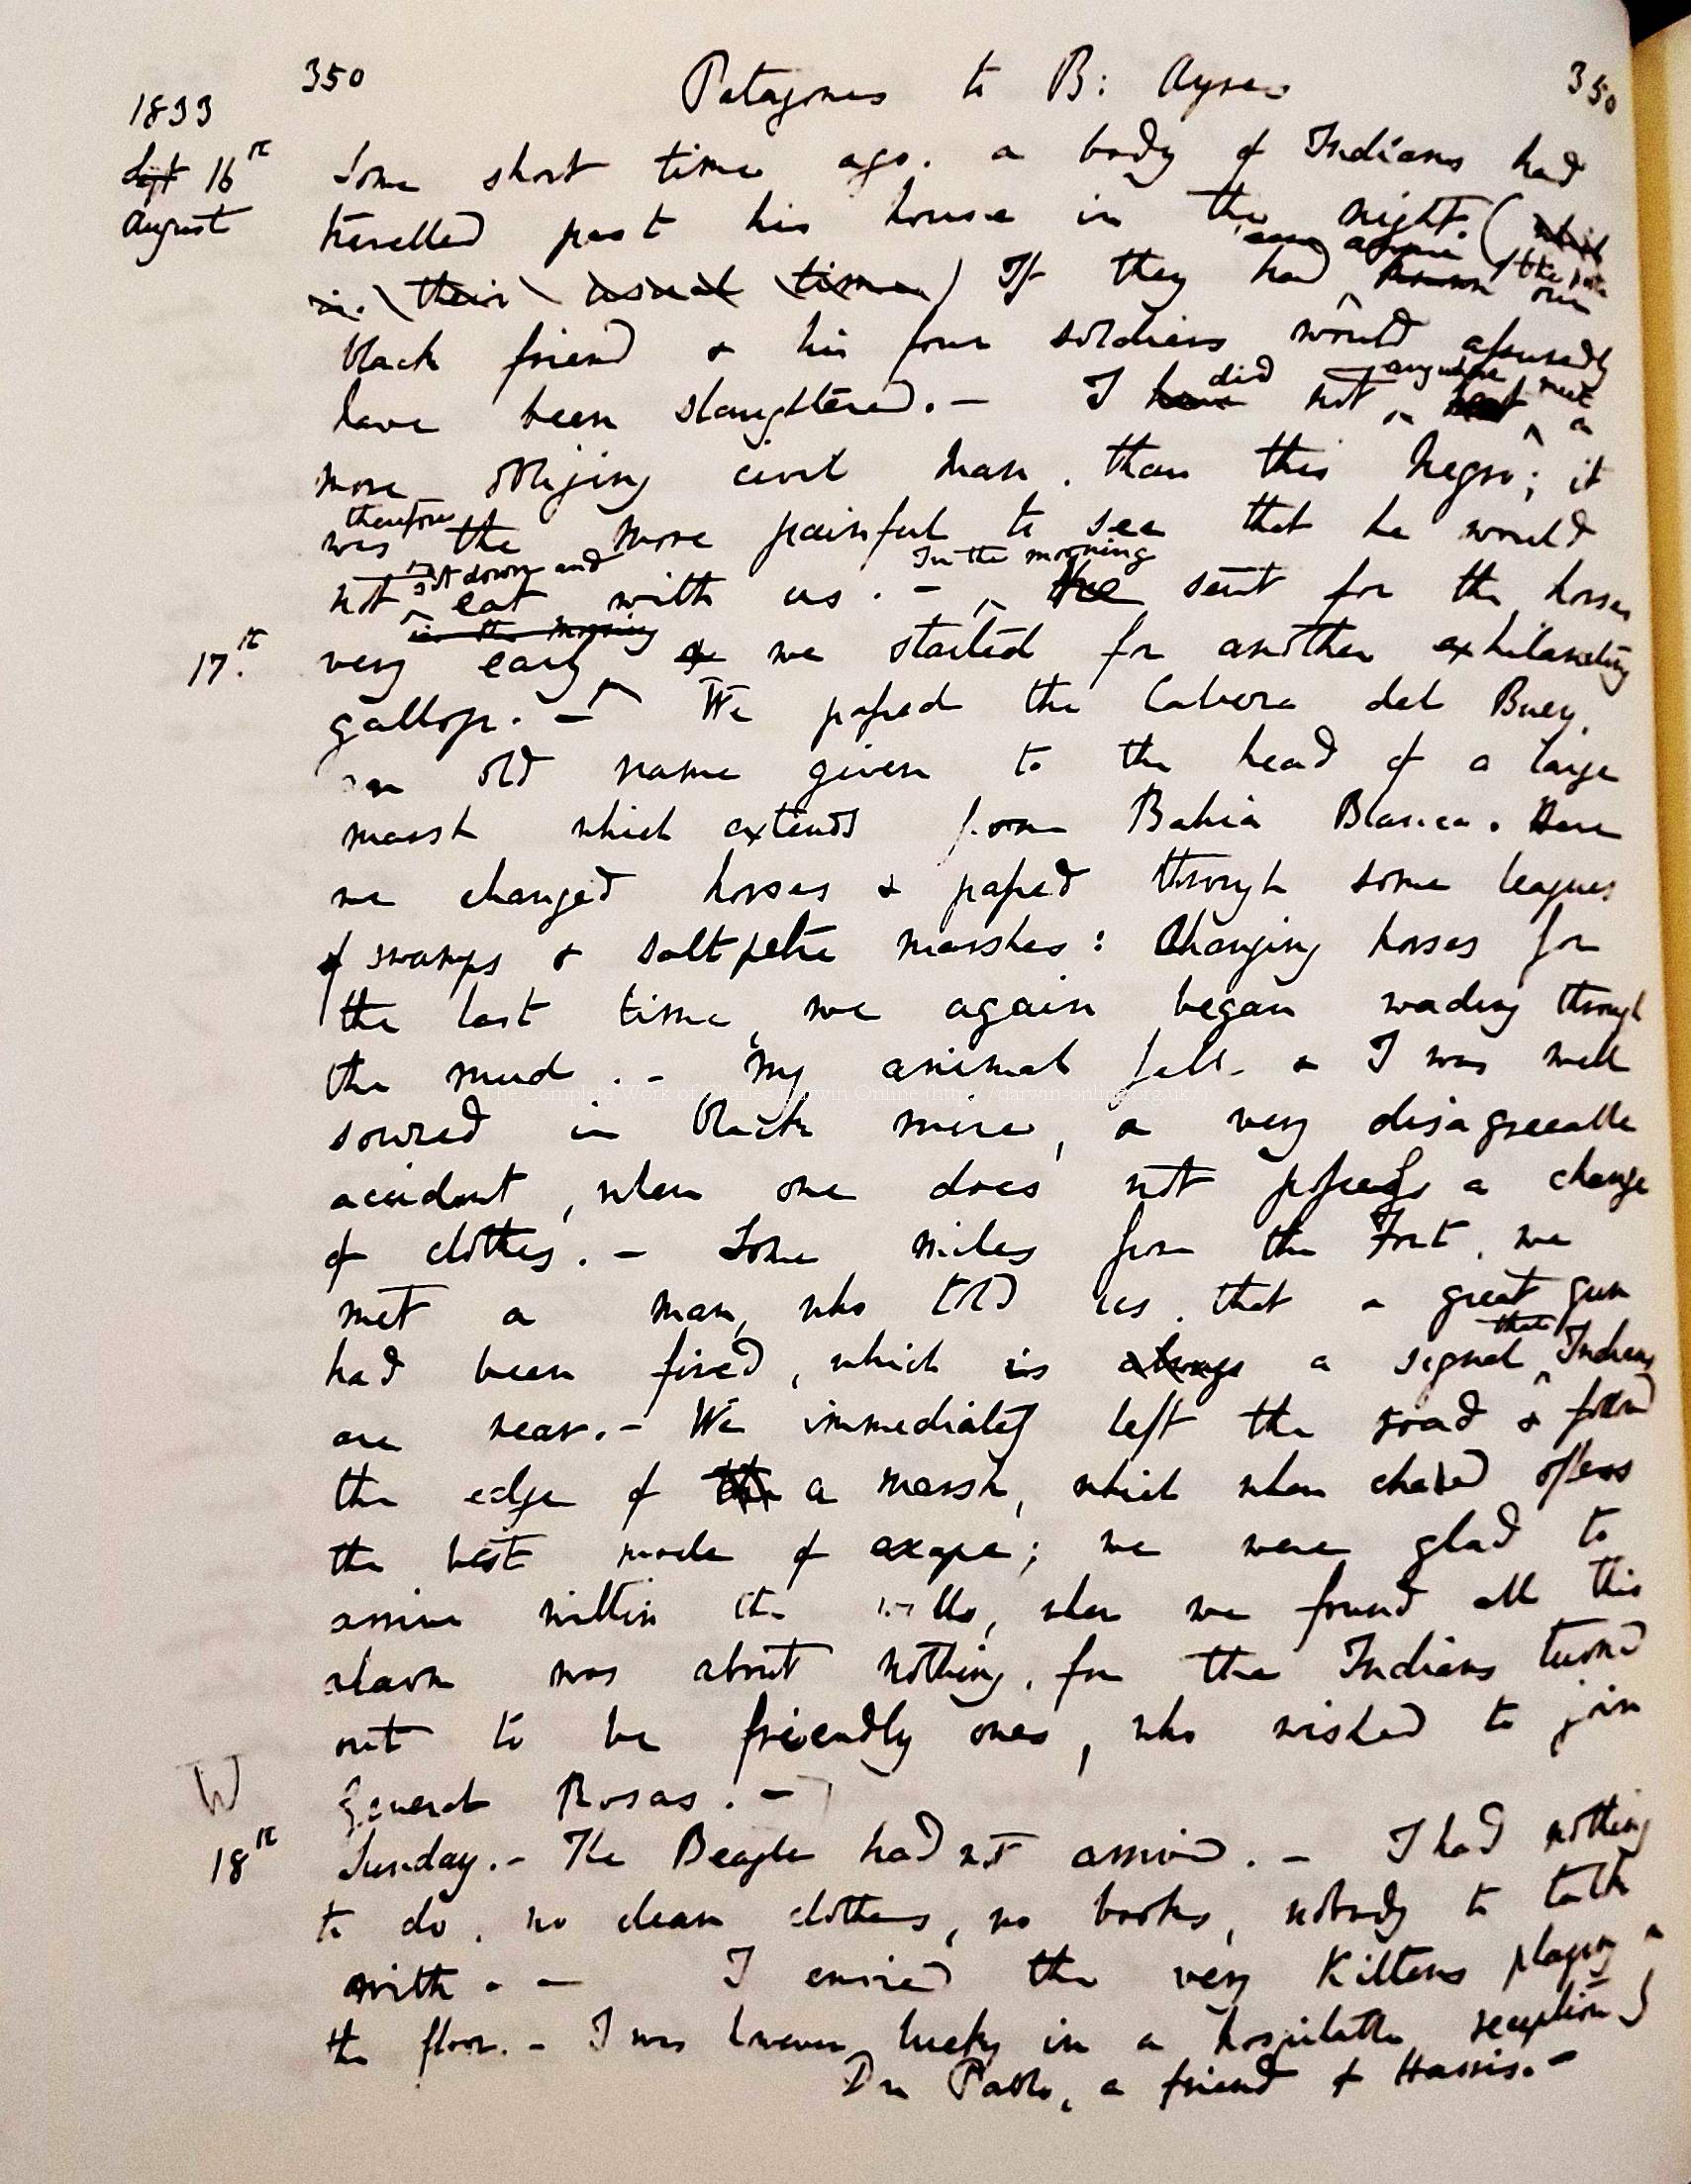 350 Patagones to B: Ayres 350
1833
Sept 16th Some short time ago. a body of Indians had
August travelled past his house in the night. (
in their usual time) If they had
black friend & his four soldiers would assuredly
have been slaughtered. — I have did not anywhere meet a
more obliging civil man, than this Negro; it
was therefore the more painful to see that he would
not sit down and eat with us. — In the morning He sent for the horses
17th very early in the morning & we started for another exhilarating
gallop. — We passed the Cabeza del Buey,
an old name given to the head of a large
marsh which extends from Bahia Blanca. Here
we changed horses & passed through some leagues
of swamps & saltpetre marshes: Changing horses for
the last time, we again began wading through
the mud. — My animal fell & I was well
soused in black mire, a very disagreeable
accident, when one does not possess a change
of clothes. — Some miles from the Fort, we
met a man, who told us that a great gun
had been fired, which is always a signal that Indians
are near. — We immediately left the road & followed
the edge of the a marsh, which when chased offers
the best mode of escape; we were glad to
arrive within the walls, when we found all this
alarm was about nothing, for the Indians turned
out to be friendly ones, who wished to join
W General Rosas. —
18th Sunday. — The Beagle had not arrived. — I had nothing
to do, no clean clothes, no books, nobody to talk
with. — I envied the very Kittens playing on
the floor. — I was however lucky in a hospitable reception of
Don Pablo, a friend of Harris. —
The Complete Work of Charles Darwin Online (http://darwin-online.org.uk/)